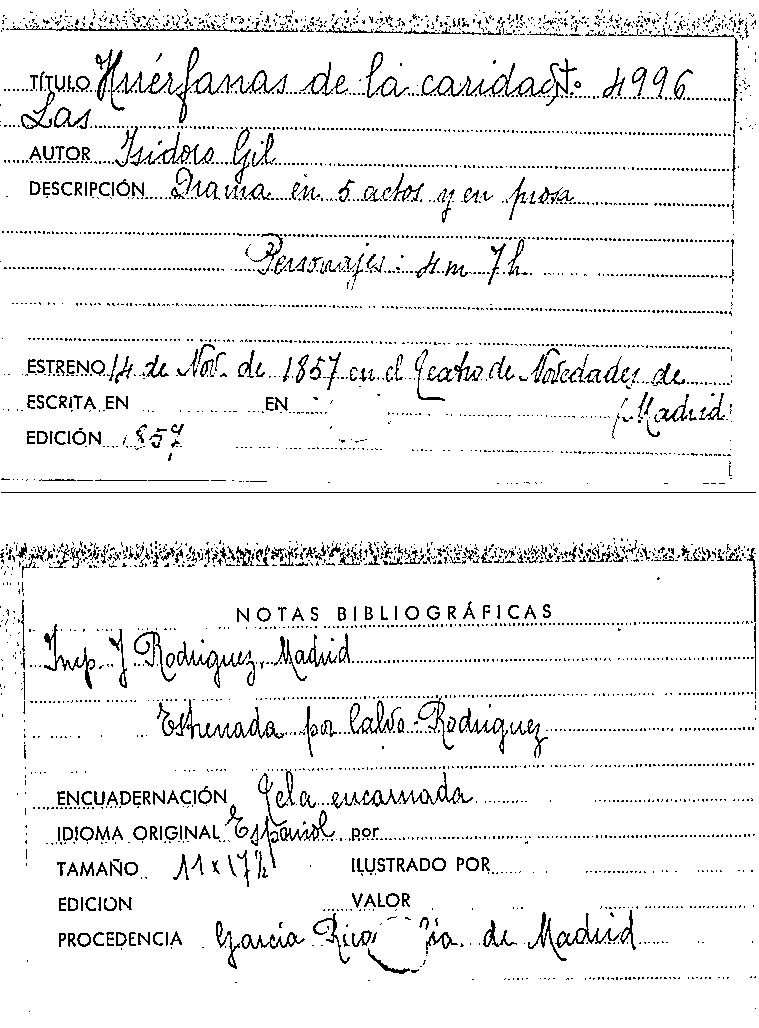 TÍTULO Huérfanas de la caridad, to. 4996
Las
AUTOR Isidoro Gil
DESCRIPCIÓN Drama en 5 actos y en prosa
Personajes: 4 m 7 h.
ESTRENO 14 de Nov. de 1857 en el Teatro de Novedades de
ESCRITA EN EN (Madrid
EDICIÓN 1857
NOTAS BIBLIOGRÁFICAS
Imp. J. Rodriguez, Madrid
Estrenada por Calvo-Rodriguez
ENCUADERNACIÓN Tela encarnada
IDIOMA ORIGINAL Español por
TAMAÑO 11 x 17½ ILUSTRADO POR
EDICION VALOR
PROCEDENCIA García Rico Cía. de Madrid